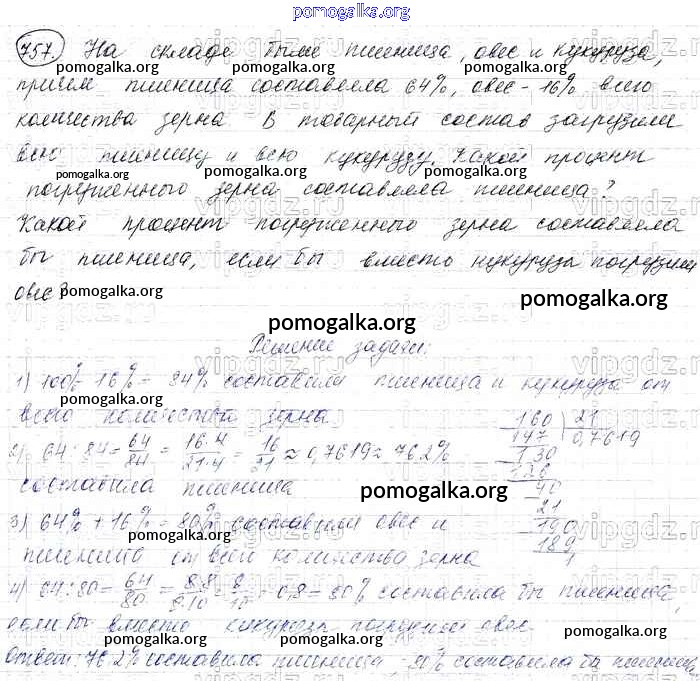 pomogalka.org
757. На складе были пшеница, овес и кукуруза,
причем пшеница составляла 64%, овес - 16% всего
количества зерна В товарный состав загрузили
всю пшеницу и всю кукурузу. Какой процент
погруженного зерна составляла пшеница?
Какой процент погруженного зерна составляла
бы пшеница, если бы вместо кукуруза погрузили
овес?
pomogalka.org
pomogalka.org
Решение задачи:
1) 100% - 16% = 84% составили пшеница и кукуруза от
всего количества зерна
2) 64 : 84 = 64/84 = 16·4/21·4 = 16/21 ≈ 0,7619 ≈ 76,2%
составила пшеница
160 21
147 0,7619
130
126
40
21
190
189
1
pomogalka.org
3) 64% + 16% = 80% составили овес и
пшеница от всего количества зерна
4) 64 : 80 = 64/80 = 8·8/8·10 = 8/10 = 0,8 = 80% составила бы пшеница,
если бы вместо кукуруза погрузили овес.
Ответ: 76,2% составила пшеница 80% составила бы пшеница